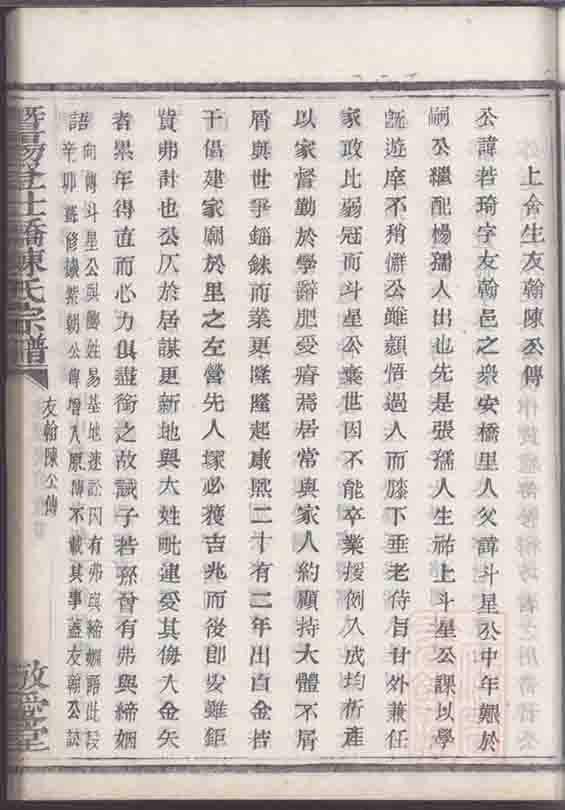 上舍生友翰陳公傳
公諱若琦字友翰邑之眾安橋里人父諱斗星公中年艱於
嗣公繼配楊孺人出也先是張孺人生祐上斗星公課以學
既遊庠不稍懈公雖穎悟過人而膝下垂老侍旨甘外兼任
家政比弱冠而斗星公棄世因不能卒業援例入成均析產
以家督勤於學辭肥受瘠焉居常與家人約顧持大體不屑
屑與世爭錙銖而業更隆隆起康熙二十有二年出百金若
干倡建家廟於里之左營先人塚必獲吉兆而後即安雖鉅
費弗計也公仄於居謀更新地與大姓毗連受其侮大金矢
者累年得直而心力俱盡銜之故誡子若孫曾有弗與締姻
語
向傳斗星公與鄰姓易基地速訟因有弗與締姻語此段
辛卯舊修據紫朝公傳增入原傳不載其事蓋友翰公誌
暨陽金士橋陳氏宗譜
友翰陳公傳
敬愛堂